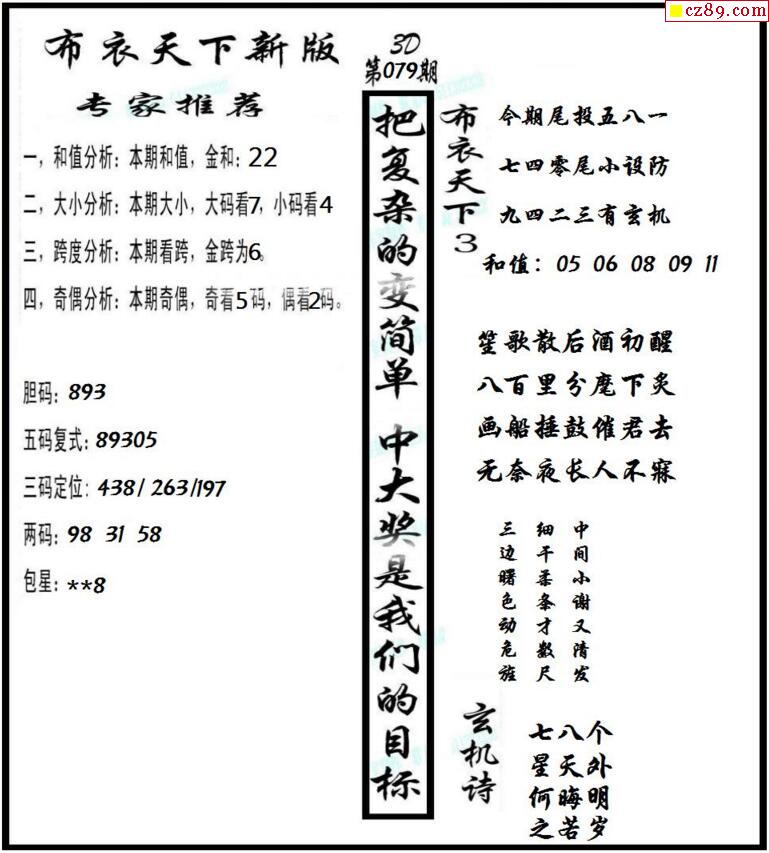 cz89.com
布衣天下新版
3D
第079期
专家推荐
一，和值分析：本期和值，金和：22
二，大小分析：本期大小，大码看7，小码看4
三，跨度分析：本期看跨，金跨为6。
四，奇偶分析：本期奇偶，奇看5码，偶看2码。
胆码：893
五码复式：89305
三码定位：438/263/197
两码：98 31 58
包星：**8
把复杂的变简单 中大奖是我们的目标
布衣天下3
今期尾投五八一
七四零尾小设防
九四二三有玄机
和值：05 06 08 09 11
笙歌散后酒初醒
八百里分麾下炙
画船捶鼓催君去
无奈夜长人不寐
三边曙色动危旌
细干柔条才数尺
中间小谢又清发
玄机诗
七八个
星天外
何晦明
之若岁